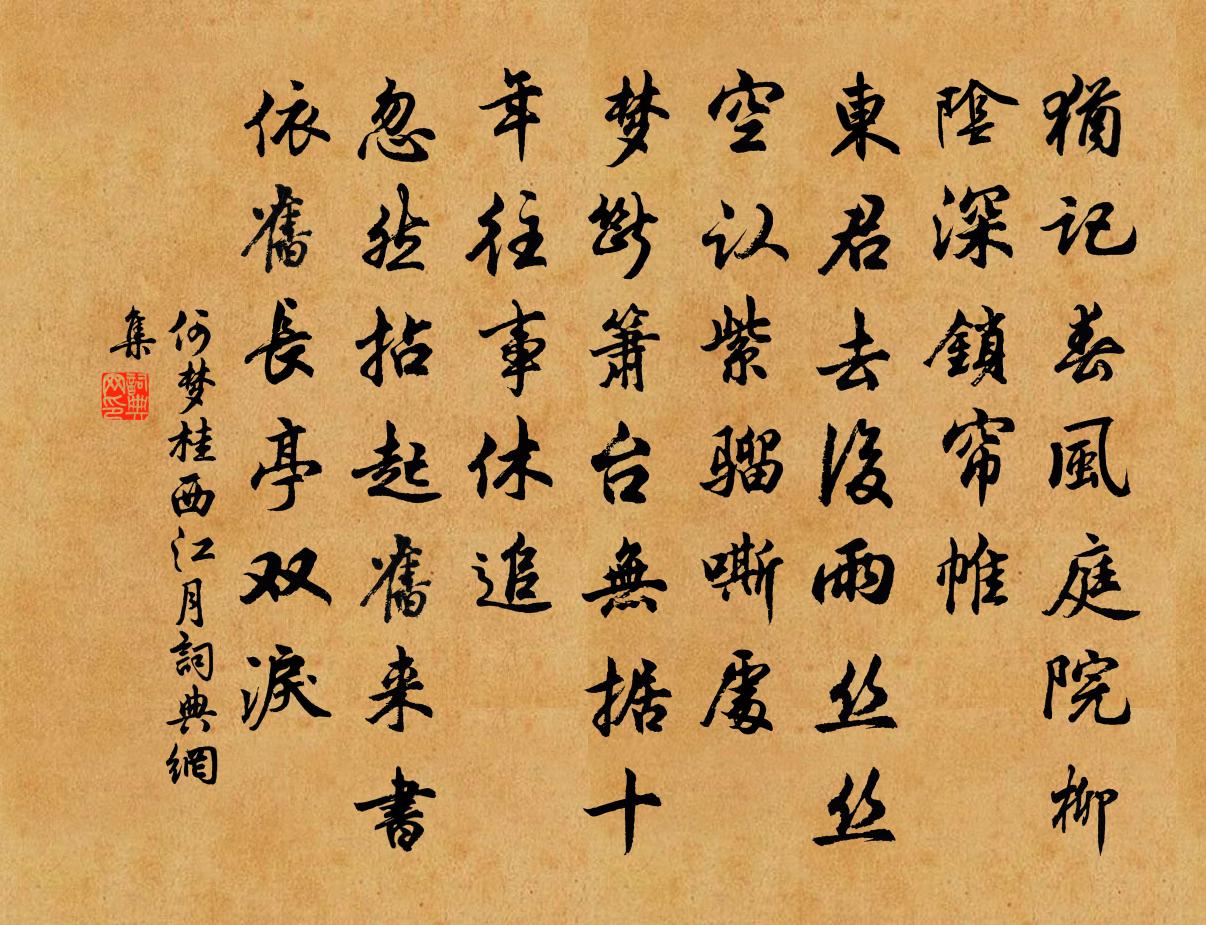 猶记春風庭院柳
陰深鎖帘帷
東君去後雨丝丝
空认紫骝嘶處
梦断箫台無据十
年往事休追
忽然拈起舊来書
依舊長亭双淚
何梦桂西江月詞典網
集
詞典网印